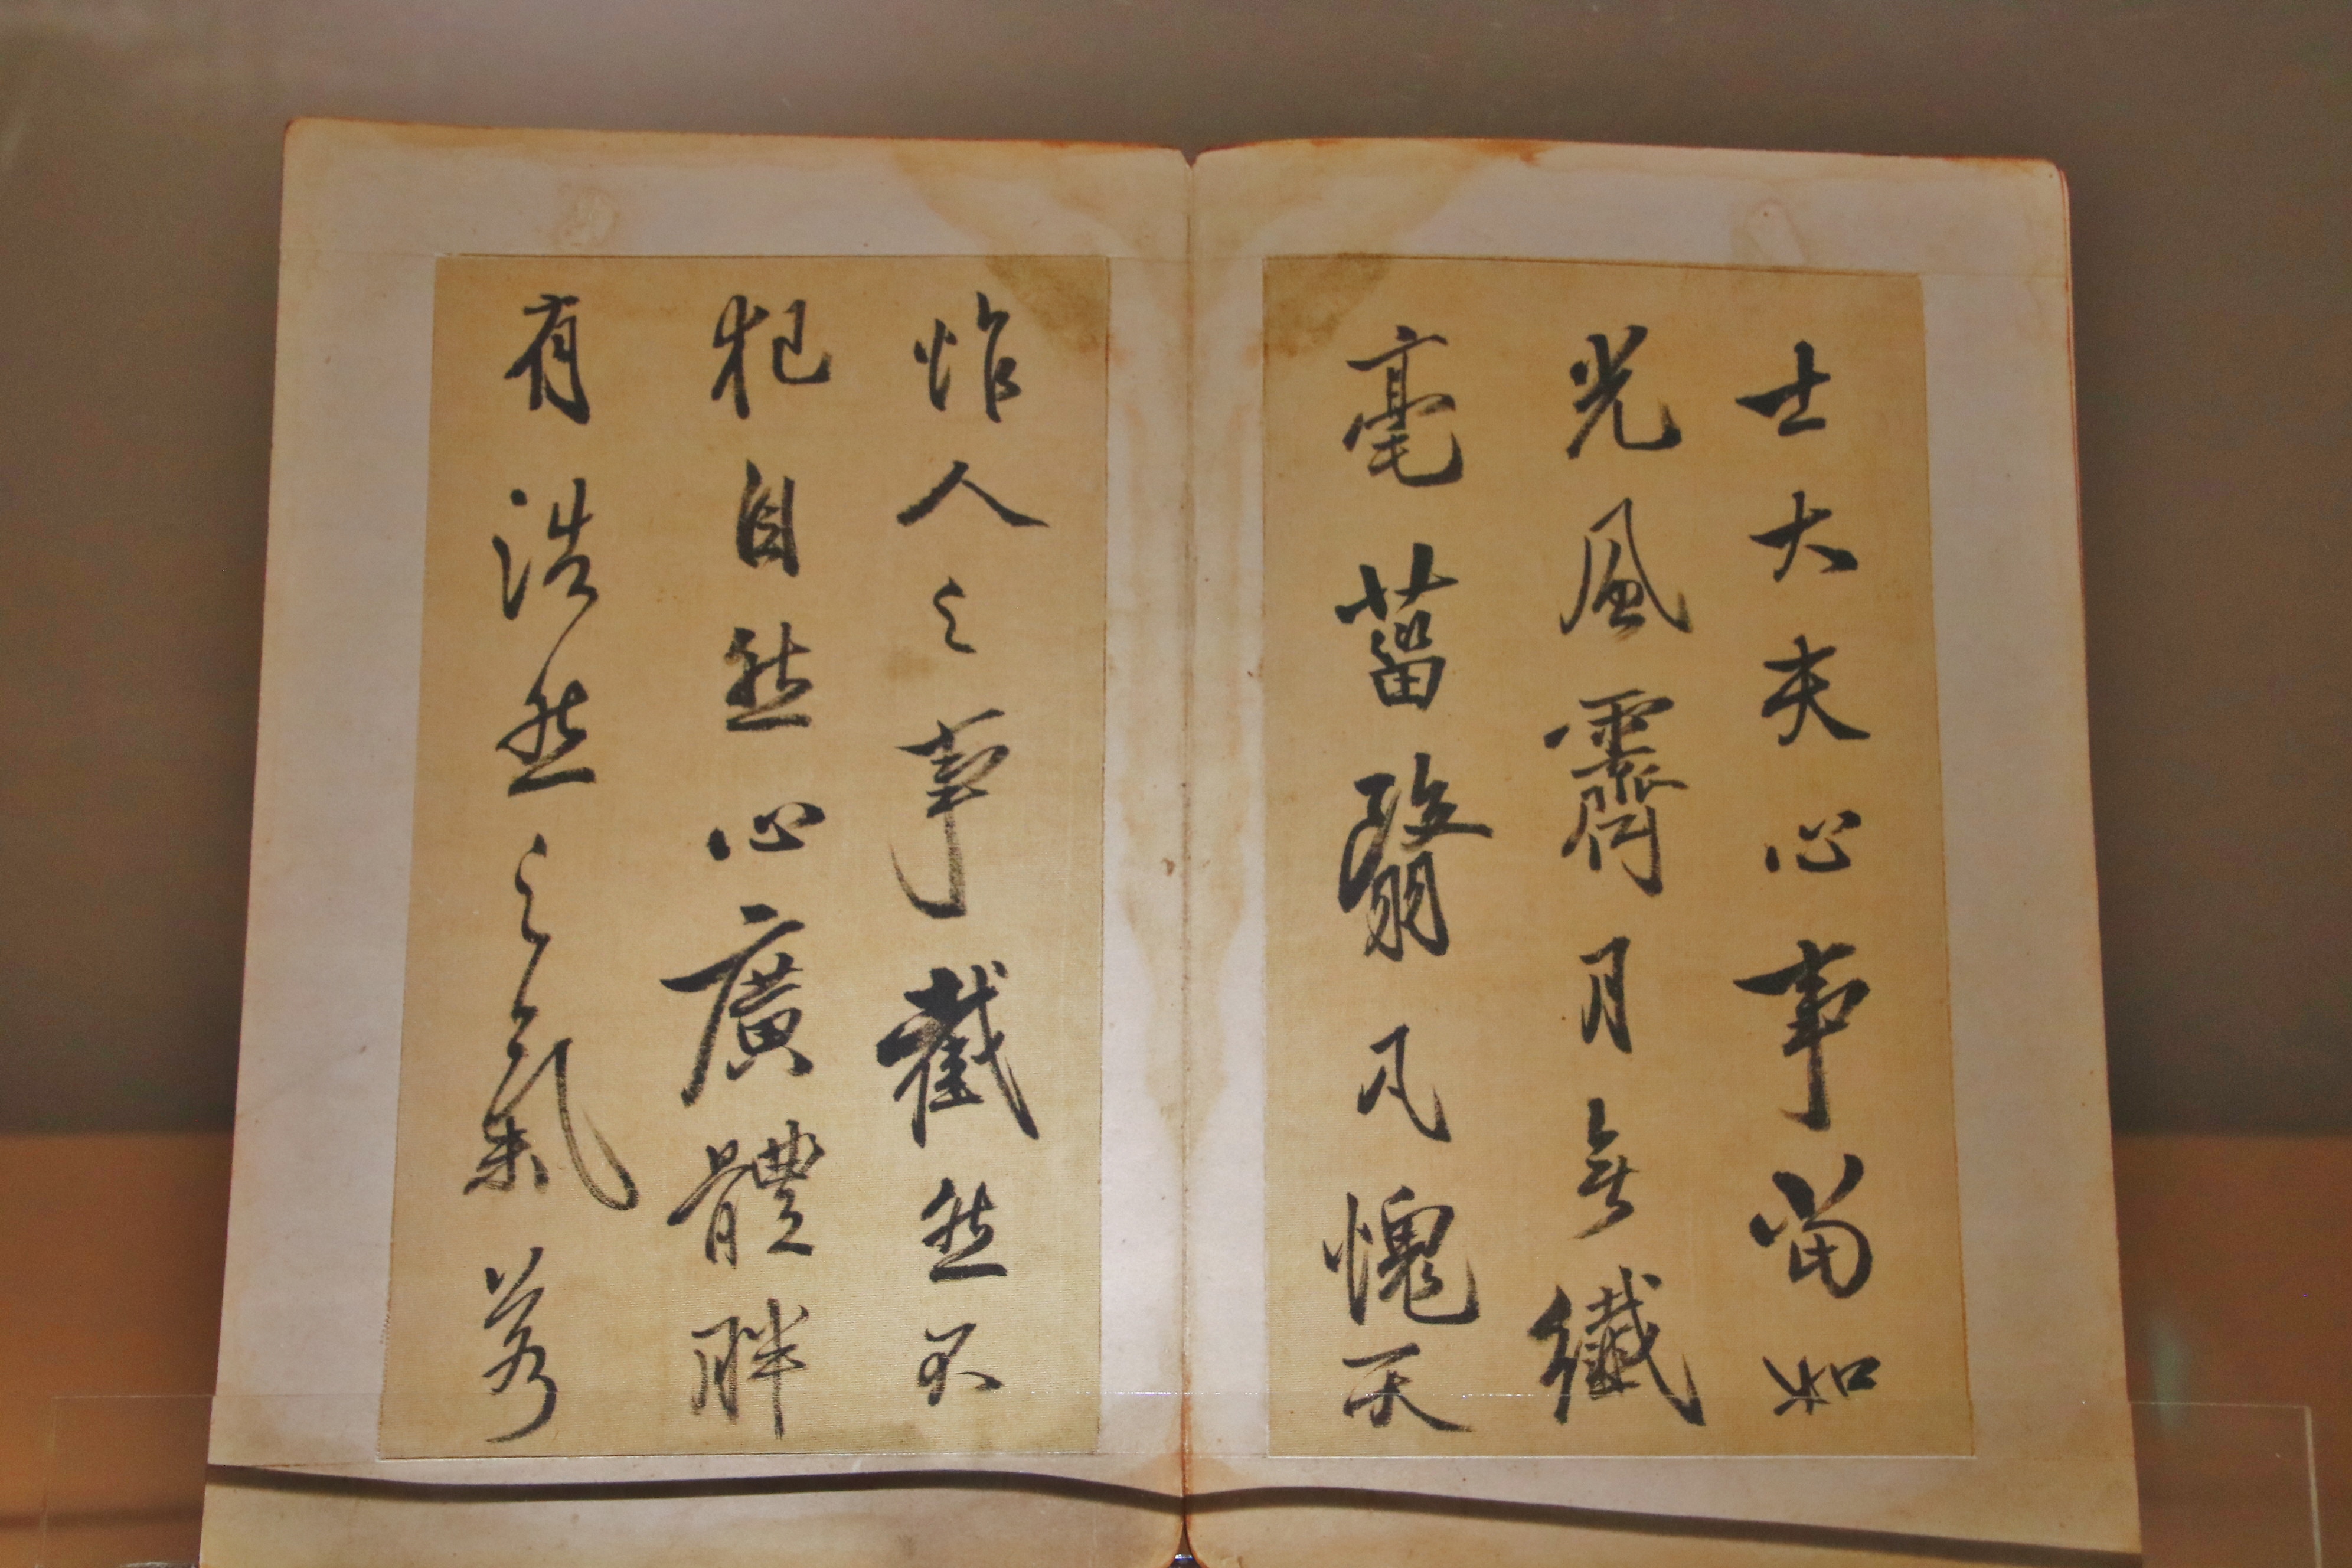 士大夫心事當如
光風霽月無纖
毫菑翳凡愧天
怍人之事截然不
犯自然心廣體胖
有浩然之氣若